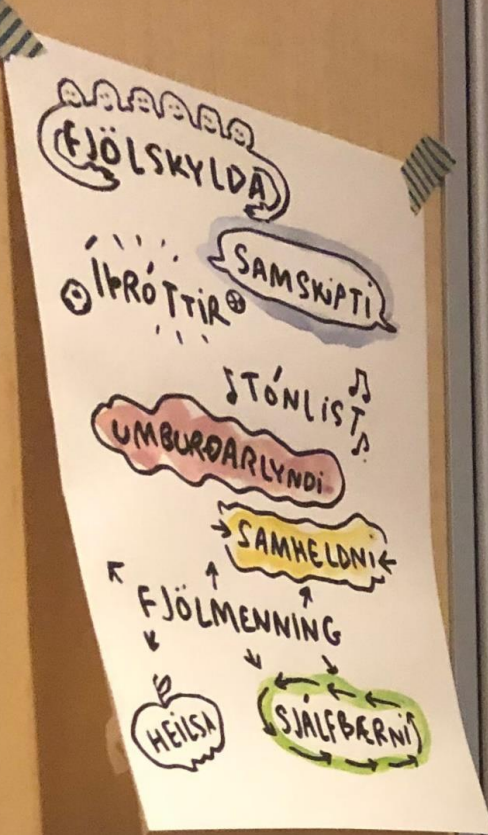 FJÖLSKYLDA
SAMSKIPTI
ÍÞRÓTTIR
TÓNLIST
UMBURÐARLYNDI
SAMHELDNI
FJÖLMENNING
HEILSA
SJÁLFBÆRNI